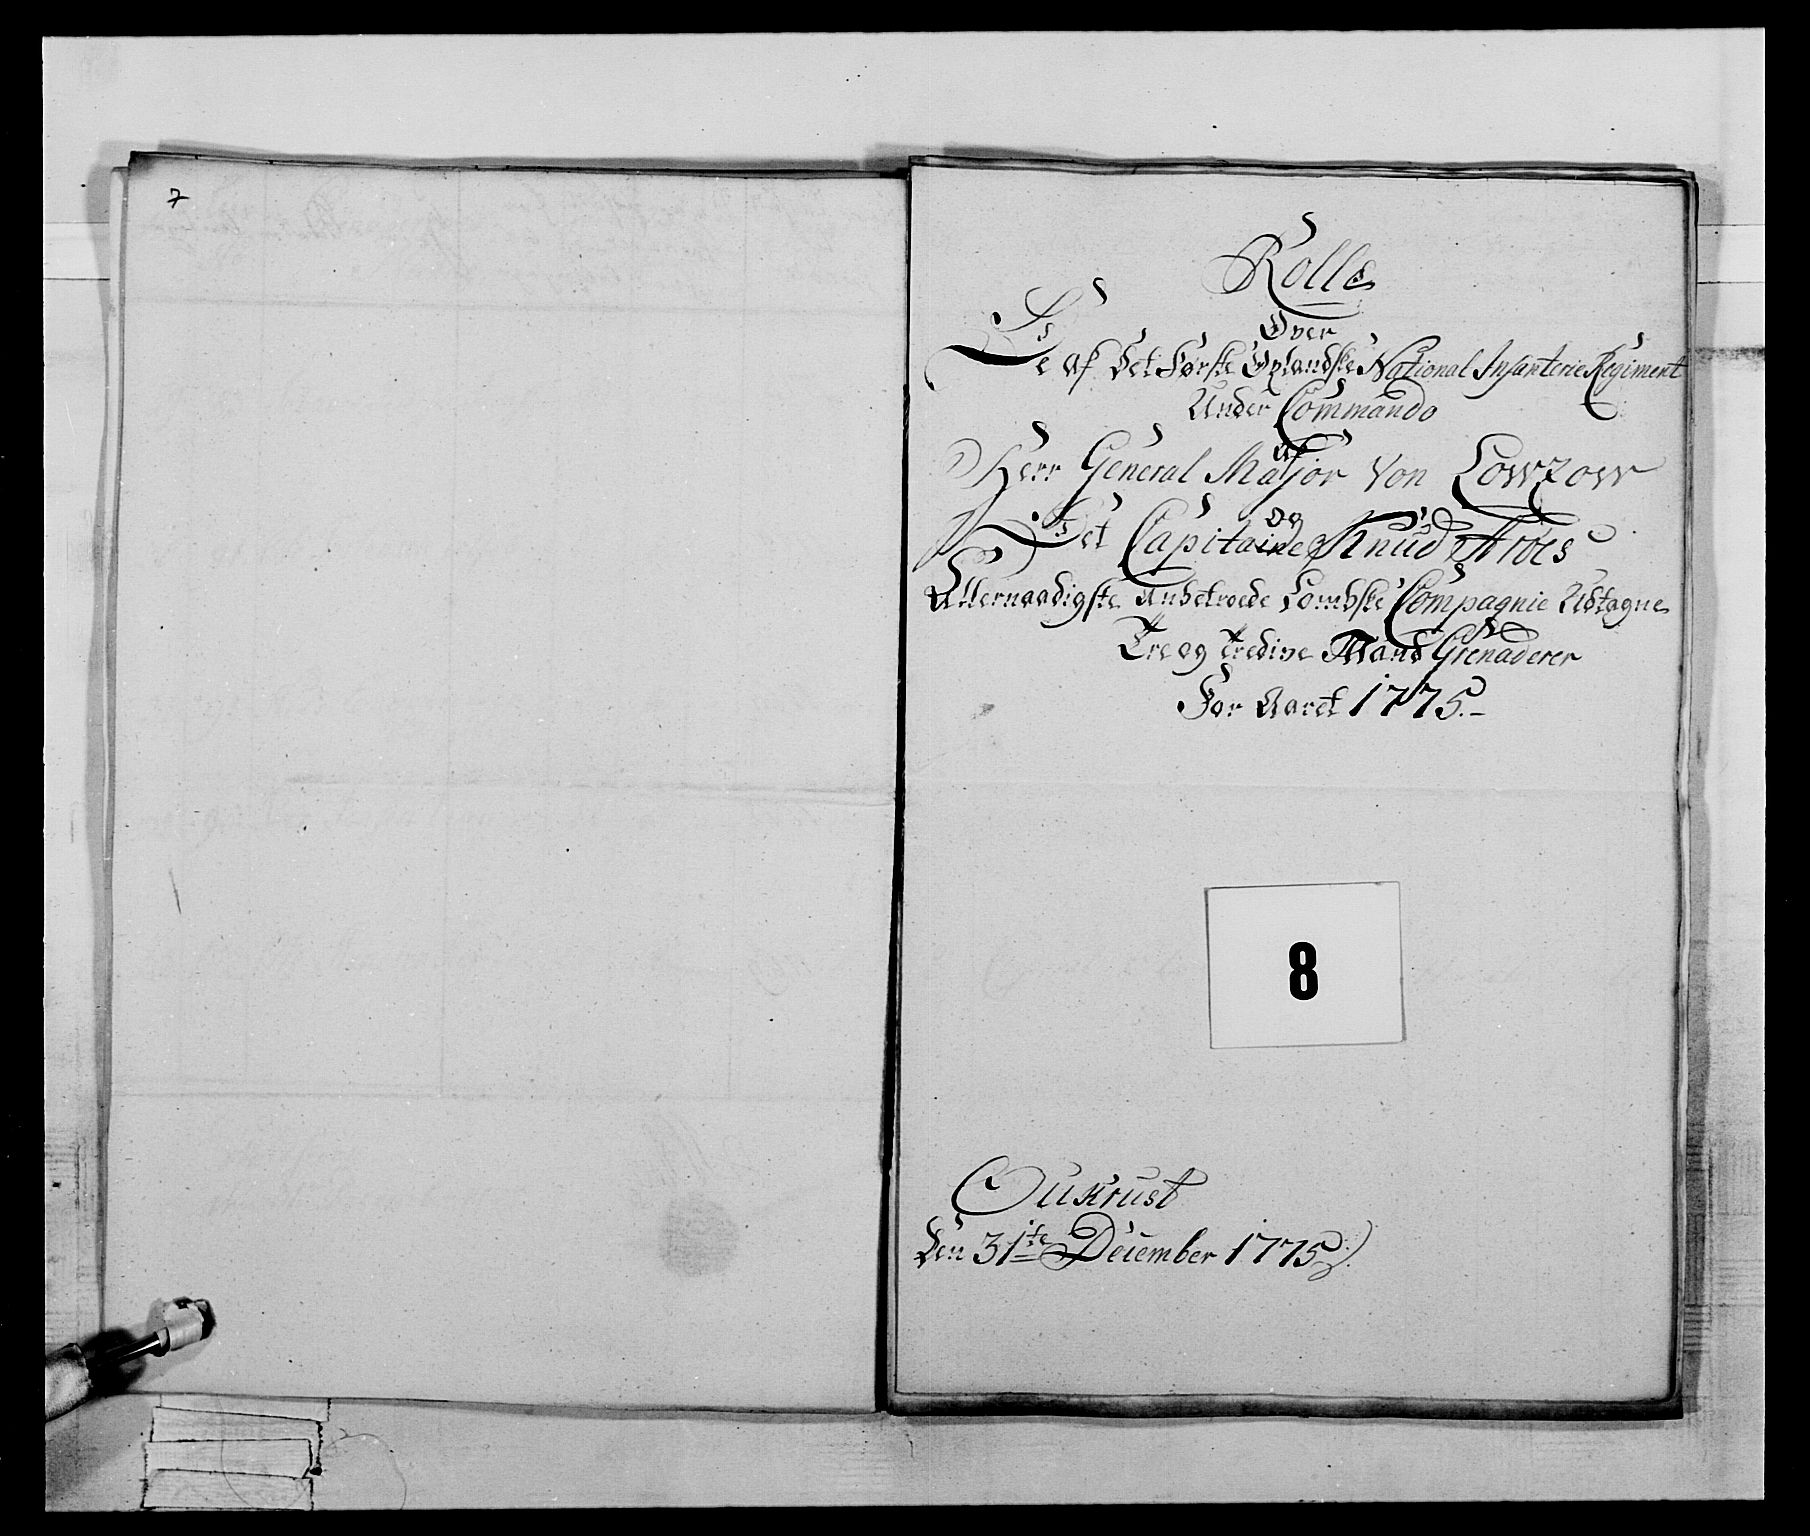 7
Rolle
Over
De af Det Første Oplandske National Infanterie Regiment
Under Commando
af
Herr General Major Von Lowzow
og
Det Capitaine Knud
Allernaadigste Anbetroede Lombske Compagnie Udtagne
Tre og Tredive Mand Grenaderer
For Aaret 1775.-
8
Sukrust
Den 31te December 1775